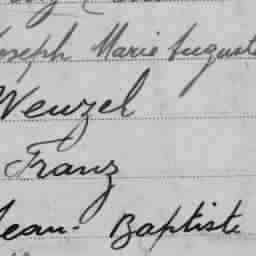 Joseph Marie August
Wenzel
Franz
Jean-Baptiste